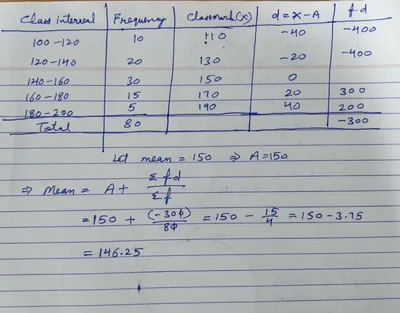 Class interval Frequency Classmark (x) d = x - A fd
100-120 10 110 -40 -400
120-140 20 130 -20 -400
140-160 30 150 0
160-180 15 170 20 300
180-200 5 190 40 200
Total 80 -300
Let mean = 150 ⇒ A = 150
⇒ Mean = A + Σfd/Σf
= 150 + (-300)/80 = 150 - 15/4 = 150 - 3.75
= 146.25